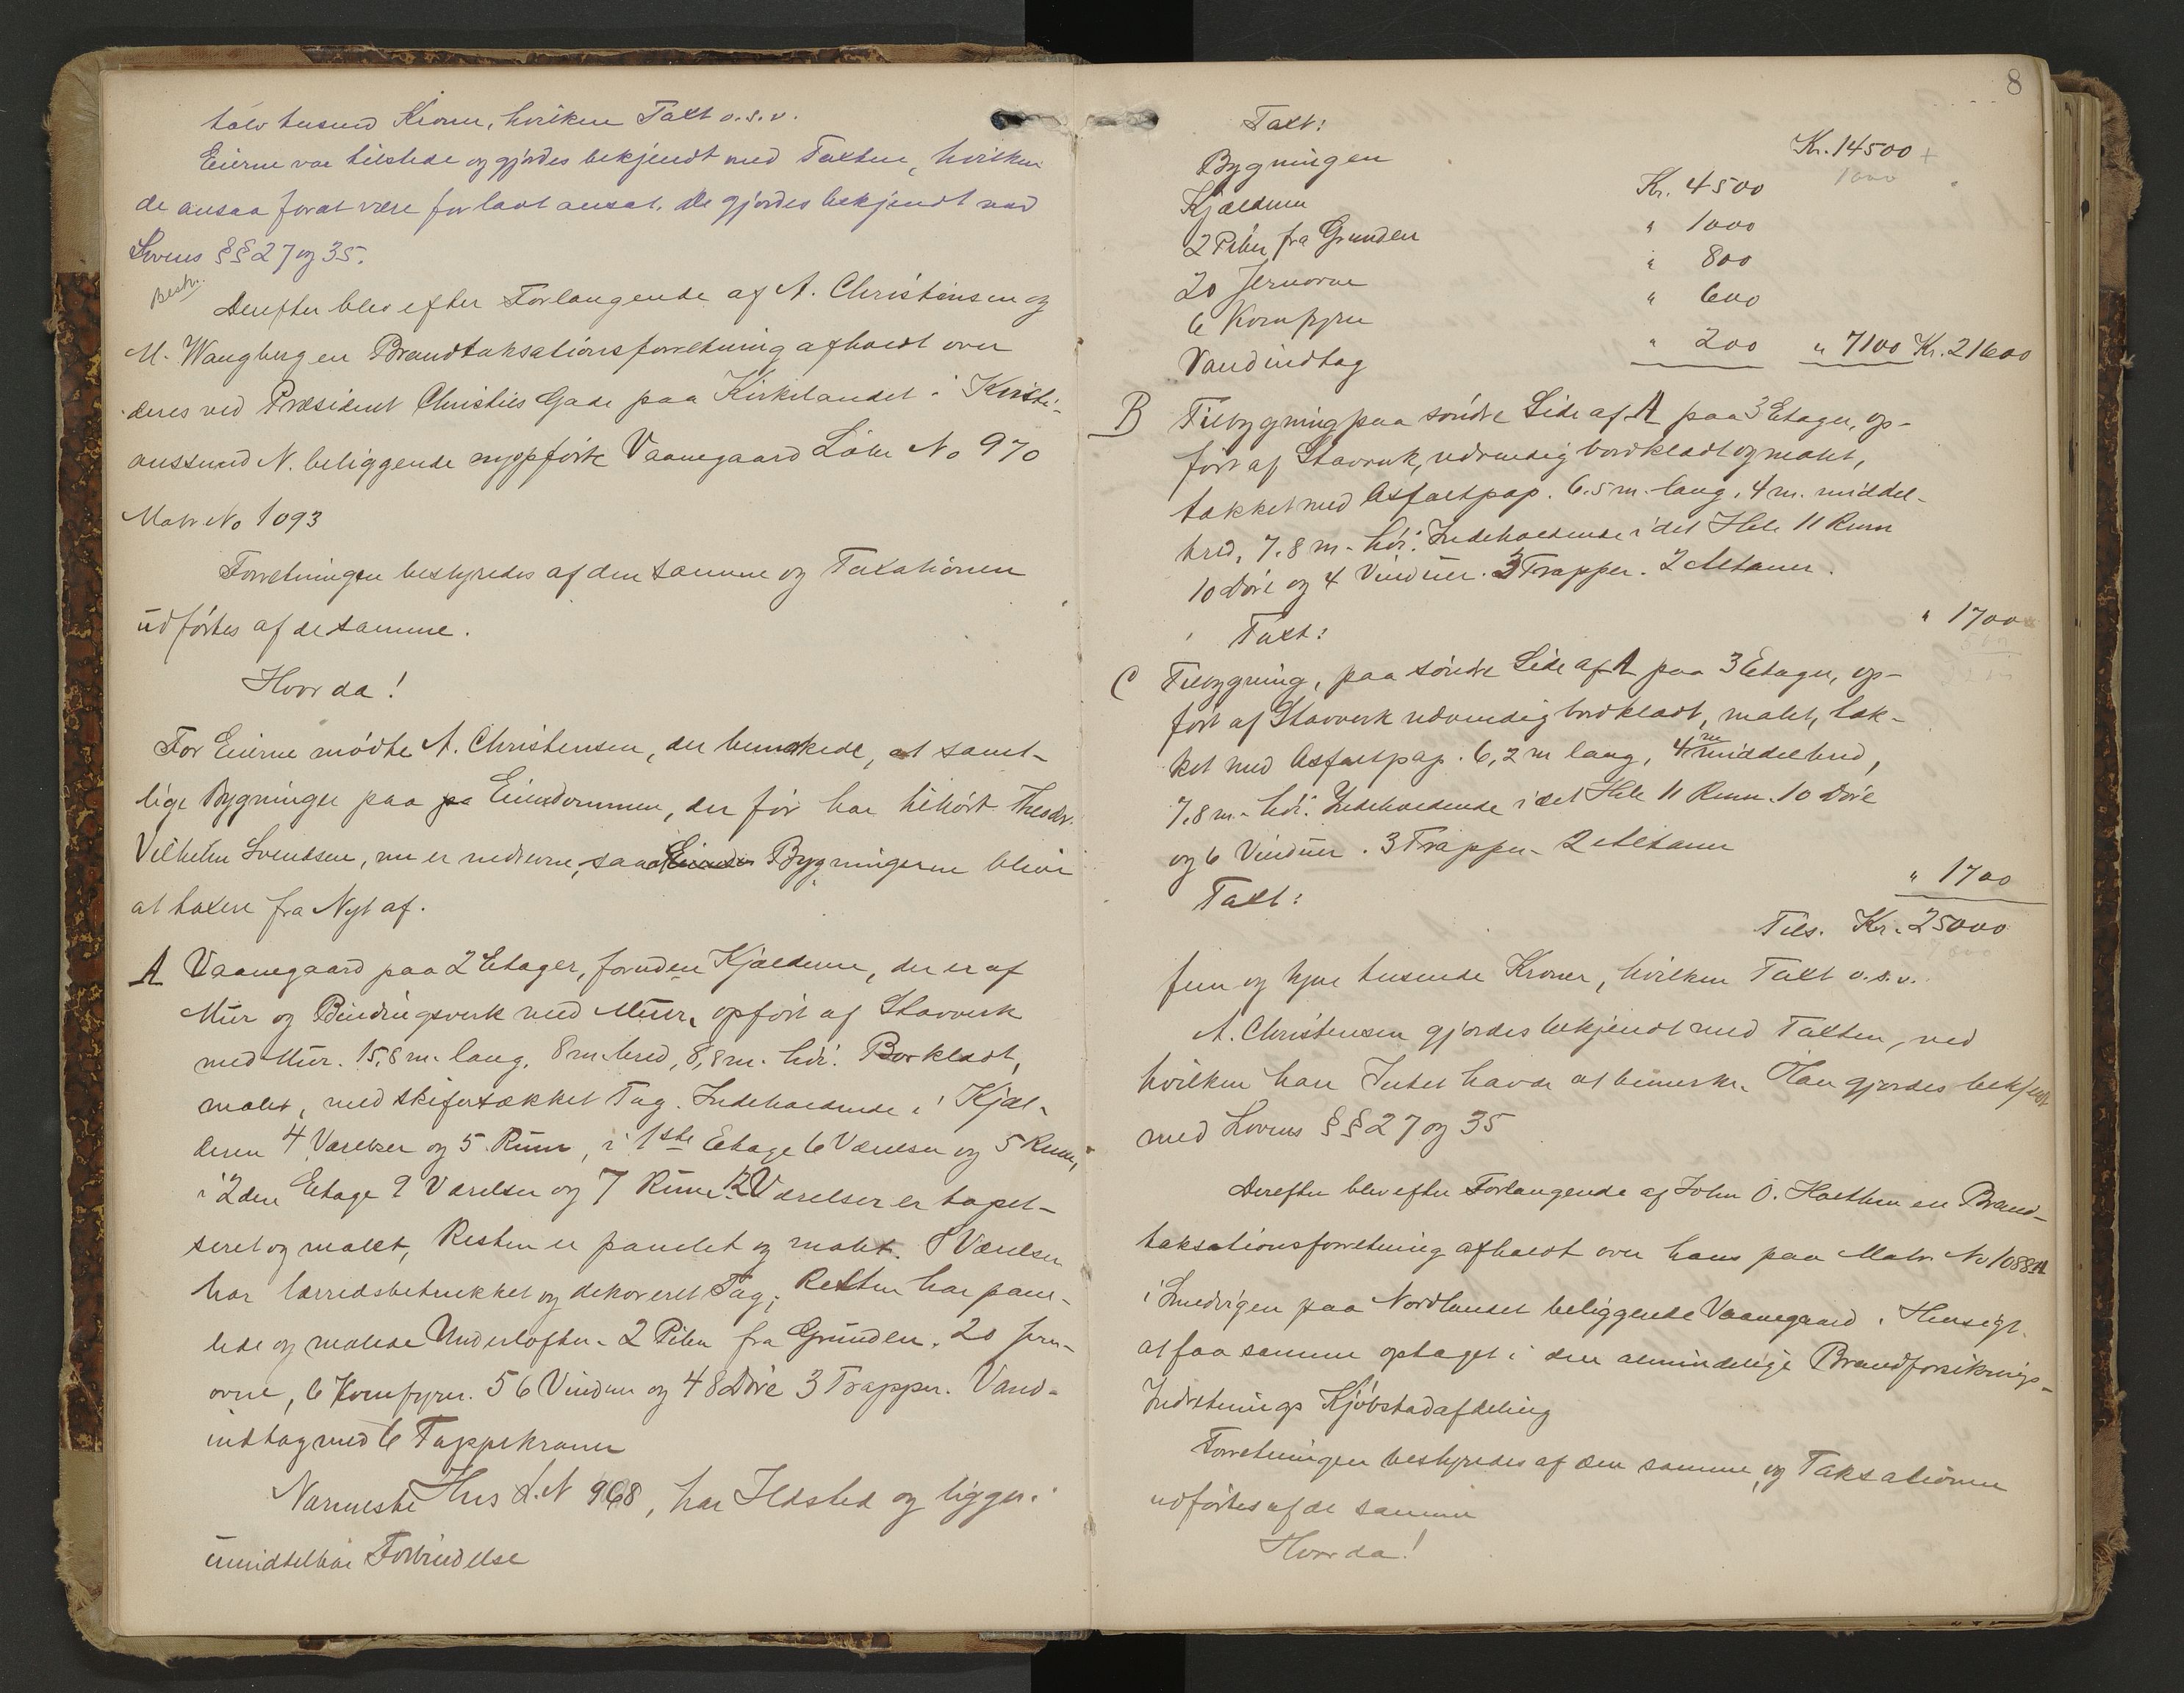 tolv tusend Kroner, hvilken Taxt o.s.v.
Eierne var tilstede og gjordes bekjendt med Taxten, hvilken
de ansaa forat være for lavt ansat. De gjordes bekjendt med
Lovens §§ 27 og 35.
Bestr.
Derefter blev efter Forlangende af A. Christensen og
M. Wangberg en Brandtaksationsforretning afholdt over
deres ved Præsident Christies Gade paa Kirkelandet i Kristi-
anssund N. beliggende nyopførte Vaanegaard Løbe No 970
Matr No 1093
Forretningen bestyredes af den samme og Taxationen
udførtes af de samme.
Hvorda!
For Eierne mødte A. Christensen, der bemærkede, at samt-
lige Bygninger paa pa Eiendommen, der før har tilhørt Theodr.
Vilhelm Svendsen, nu er nedrevne, saa Bygningerne blive
at taxere fra Nyt af.
A Vaanegaard paa 2 Etager, foruden Kjælderne, der er af
Mur og Bindingsverk med Muur, opført af Stavverk
med Mur. 15,8 m. lang, 8 m. bred, 8,8 m. høi. Borklædt,
malet, med skifertækket Tag. Indeholdende i Kjæl-
deren 4 Værelser og 5 Rum, i 1ste Etage 6 Værelser og 5 Rum,
i 2den Etage 9 Værelser og 7 Rum. 12 Værelser er tapet-
seret og malet, Resten er panelet og malet. 8 Værelser
har lærredsbetrukket og dekoreret Tag; Resten har pane-
lede og malede Underlofter. 2 Piber fra Grunden. 20 Jern-
ovne, 6 Komfyrer. 56 Vinduer og 48 Døre 3 Trapper. Vand-
indtag med 6 Tappekraner
Nærmeste Hus L. N 968, har Ildsted og ligger i
umiddelbar Forbindelse
8
Taxt:
Bygningen Kr. 14500 +
1000
Kjælderen Kr. 4500
2 Piber fra Grunden " 1000
20 Jernovne " 800
6 Komfyrer " 600
Vandindtag " 200 " 7100 Kr. 21600
B Tilbygning paa søndre Side af A paa 3 Etager, op-
ført af Stavverk, udvendig bordklædt og malet,
tækket med Asfaltpap. 6.5 m. lang, 4 m. middel-
bred, 7.8 m. høi. Indeholdende i det Hele 11 Rum
10 Døre og 4 Vinduer. 3 Trapper. 2 Altaner.
Taxt: " 1700
C Tilbygning, paa søndre Side af A paa 3 Etager, op-
ført af Stavverk udvendig bordklædt, malet, tæk-
ket med Asfaltpap. 6,2 m lang, 4 m middelbred,
7,8 m. høi. Indeholdende i det Hele 11 Rum. 10 Døre
og 6 Vinduer. 3 Trapper. 2 Altaner
Taxt: " 1700
Tils. Kr. 25000
fem og tyve tusende Kroner, hvilken Taxt o.s.v.
A. Christensen gjordes bekjendt med Taxten, ved
hvilken han Intet havde at bemerke. Han gjordes bekjendt
med Lovens §§ 27 og 35
Derefter blev efter Forlangende af John O. Holthen en Brand-
taksationsforretning afholdt over hans paa Matr. No 1088 A
i Smedvigen paa Nordlandet beliggende Vaanegaard i Hensigt
at faa samme optaget i den almindelige Brandforsikrings-
Indretnings Kjøbstadafdeling
Forretningen bestyredes af den samme og Taksationen
udførtes af de samme
Hvorda!